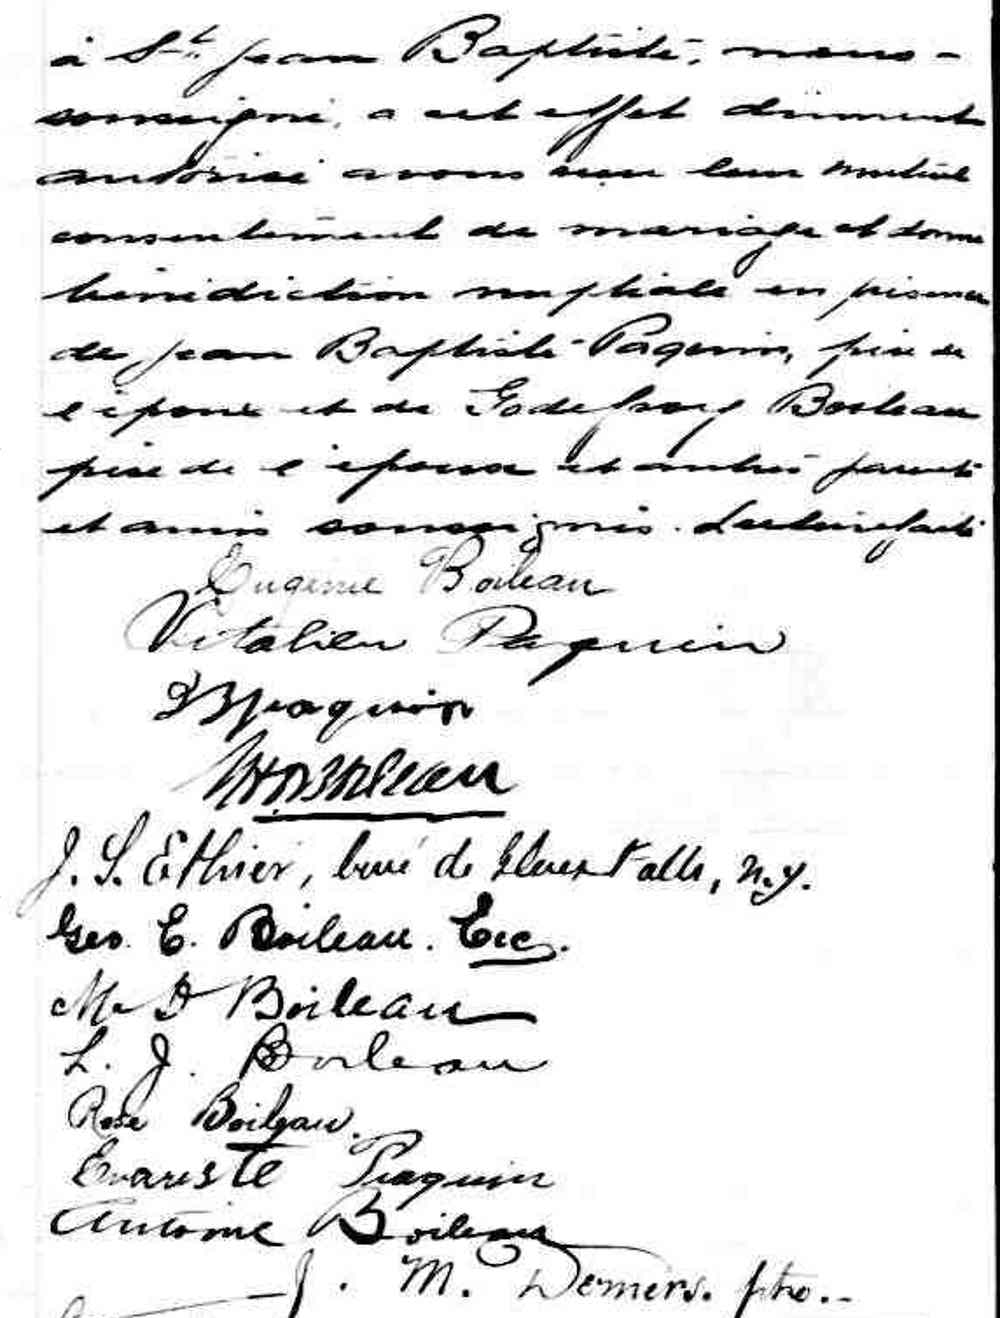 à St. Jean Baptiste, nous-
soussigné, a cet effet dument
autorisé avons reçu leur mutuel
consentement de mariage et donné
bénédiction nuptiale en présence
de Jean Baptiste Paquin, père de
l'épouse et de Godefroy Boileau
père de l'époux et autres parents
et amis soussignés. Lecture faite
Eugénie Boileau
Vitalien Paquin
JBpaquin
Boileau
J. S. Ethier, curé de Falls, N.Y.
Geo. E. Boileau. Ecc.
Boileau
L. J. Boileau
Rose Boileau.
Evariste Paquin
Antoine Boileau
J. M. Demers. ptre.-